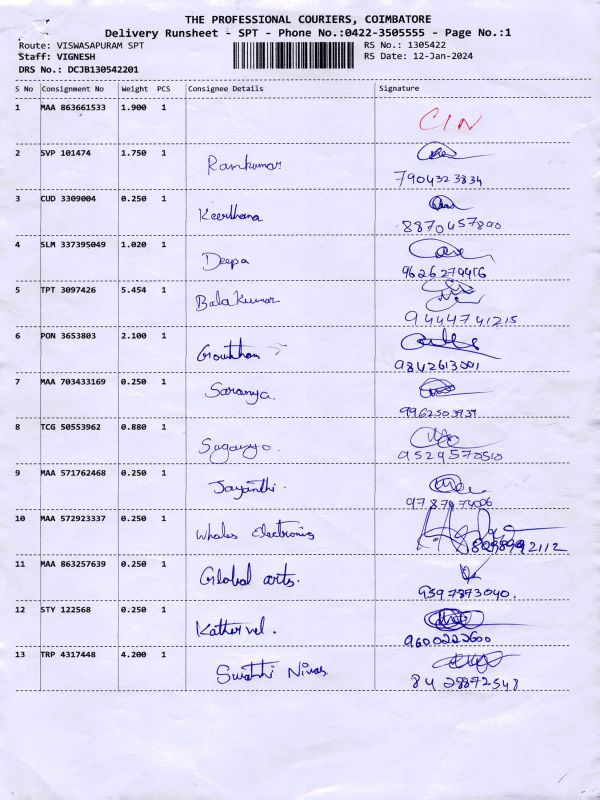 THE PROFESSIONAL COURIERS, COIMBATORE
Delivery Runsheet - SPT - Phone No.:0422-3505555 - Page No.:1
Route: VISWASAPURAM SPT RS No.: 1305422
Staff: VIGNESH RS Date: 12-Jan-2024
DRS No.: DCJB130542201
S No Consignment No Weight PCS Consignee Details Signature
1 MAA 863661533 1.900 1 CIN
2 SVP 101474 1.750 1 Ramkumar
7904323834
3 CUD 3309004 0.250 1 Keerthana
8870457890
4 SLM 337395049 1.020 1 Deepa
5 TPT 3097426 5.454 1 Bala Kumar
9444741215
6 PON 3653803 2.100 1 Gowtham
9842613001
7 MAA 703433169 0.250 1 Saranya
8 TCG 50553962 0.880 1
9529570510
9 MAA 571762468 0.250 1 Jayanthi.
10 MAA 572923337 0.250 1 Whales Electronics
11 MAA 863257639 0.250 1 Global arts.
12 STY 122568 0.250 1 Kathirvel.
9600222600
13 TRP 4317448 4.200 1 Swathi Nivas
8428872548